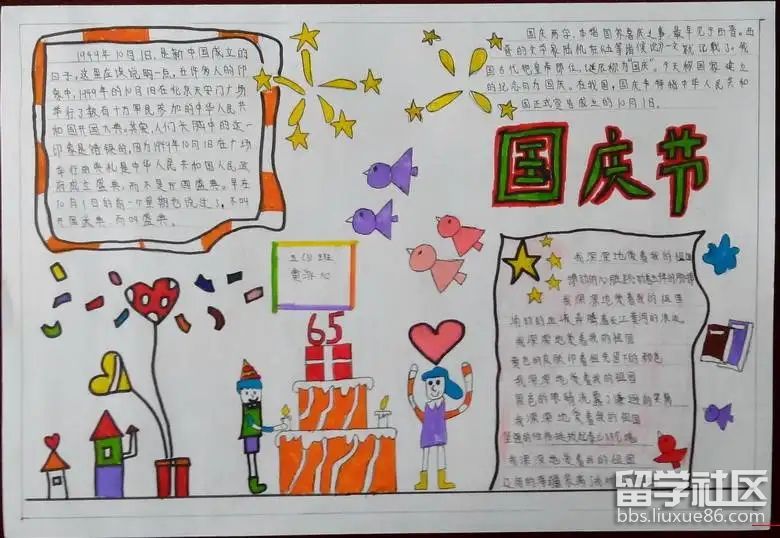 1949年10月1日,是新中国成立的
日子。这里应该说明一点,在许多人的印
象中,1949年的10月1日在北京天安门广场
举行了数有十万军民参加的中华人民共
和国开国大典。其实,人们头脑中的这一
印象是错误的,因为1949年10月1日在广场
举行的典礼是中华人民共和国人民政
府成立盛典,而不是开国盛典。早在
10月1日的前一个星期也说过了。不叫
开国盛典 而叫盛典。
国庆两字,本指国家喜庆之事,最早见于西晋。西
晋的文学家陆机在《五等诸侯论》一文就记载了。我
国古代把皇帝即位、诞辰称为"国庆"。今天称国家建立
的纪念日为国庆。在我国,国庆节特指中华人民共和
国正式宣告成立的10月1日。
国庆节
五(3)班
65
我深深地爱着我的祖国
我深深地爱着我的祖国
我深深地爱着我的祖国
黄色的皮肤印着祖先留下的颜色
我深深地爱着我的祖国
我深深地爱着我的祖国
我深深地爱着我的祖国
留学社区
bbs.liuxue86.com